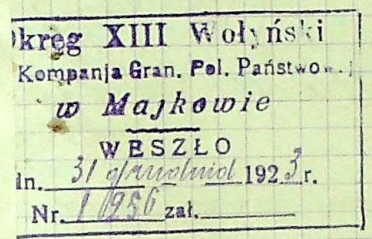 Okręg XIII Wołyński
Kompanja Gran. Pol. Państwow.
w Majkowie
WESZŁO
dn. 31 grudnia 1923 r.
Nr. 1956 zał.